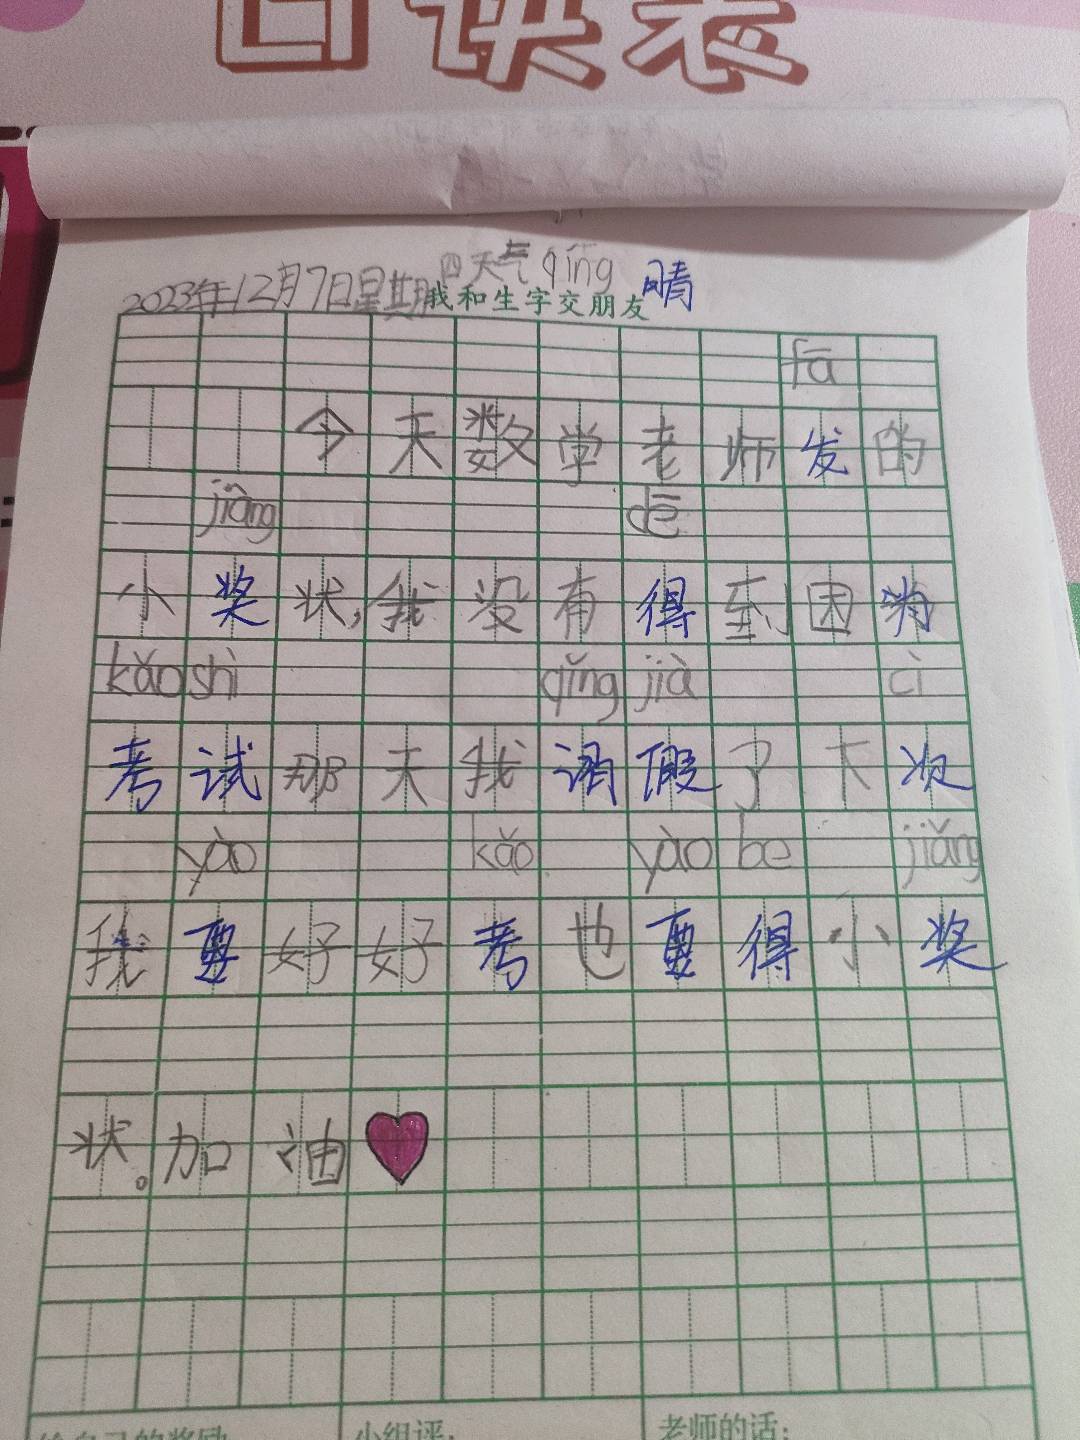 日课表
2023年12月7日星期四天气qíng 晴
我和生字交朋友
fā
今天数学老师发的
jiàng dē
小奖状,我没有得到因为
kǎo shì qǐng jià cì
考试那天我请假了下次
yào kǎo yào be jiǎng
我要好好考也要得小奖
状。加油
给自己的奖励 小组评: 老师的话: